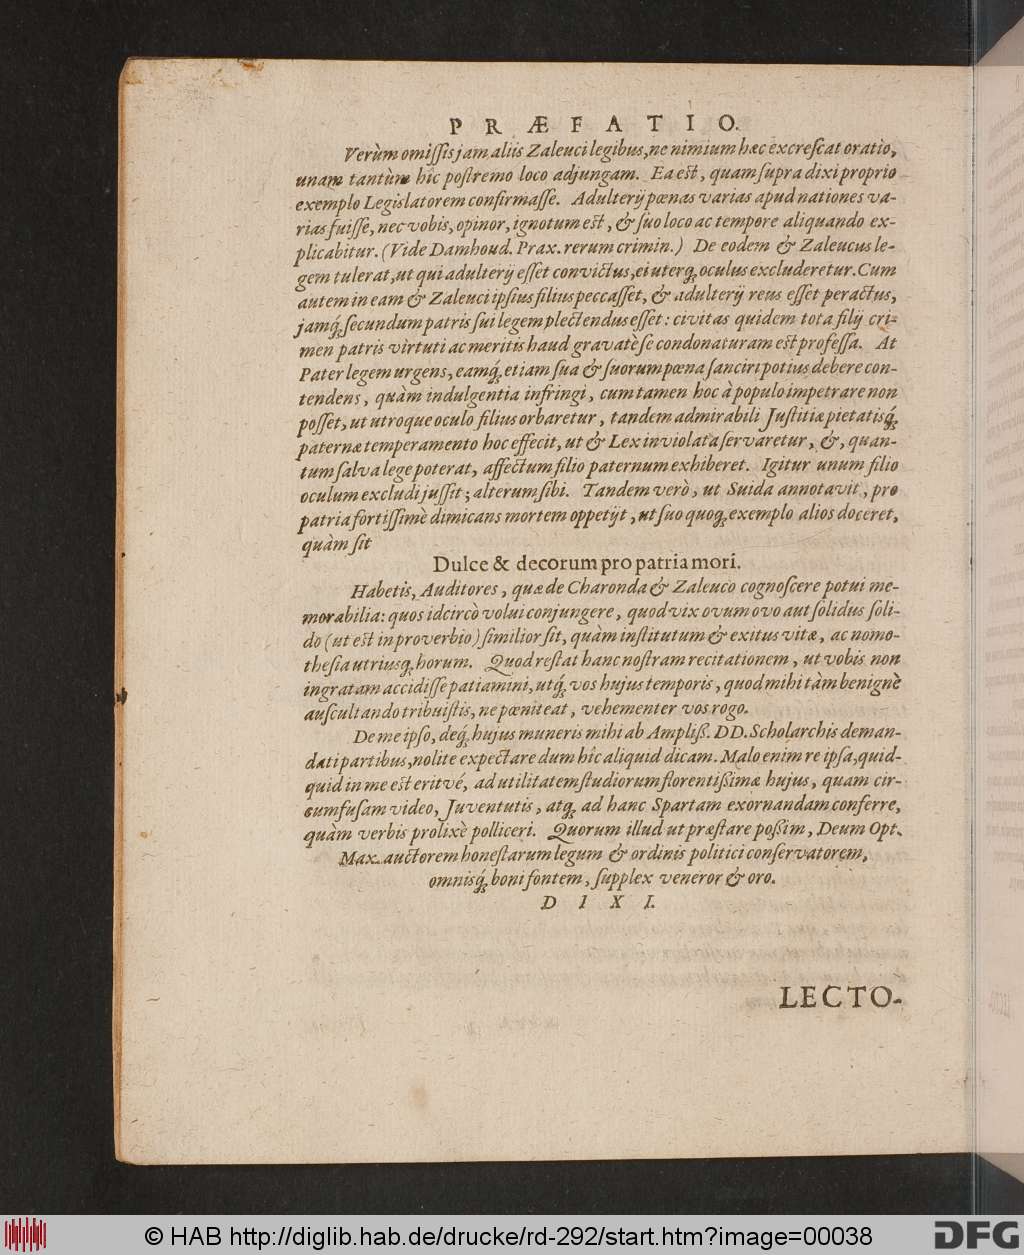 PRÆFATIO.
Verùm omiſſis jam aliis Zaleuci legibus, ne nimium hæc excreſcat oratio,
unam tantùm hîc poſtremo loco adjungam. Ea eſt, quam ſupra dixi proprio
exemplo Legislatorem confirmaſſe. Adulterij pœnas varias apud nationes va-
rias fuiſſe, nec vobis, opinor, ignotum eſt, & ſuo loco ac tempore aliquando ex-
plicabitur. (Vide Damhoud. Prax. rerum crimin.) De eodem & Zaleucus le-
gem tulerat, ut qui adulterij eſſet convictus, ei uterq́; oculus excluderetur. Cum
autem in eam & Zaleuci ipſius filius peccaſſet, & adulterij reus eſſet peractus,
jamq́; ſecundum patris ſui legem plectendus eſſet: civitas quidem tota filij cri-
men patris virtuti ac meritis haud gravatè ſe condonaturam eſt profeſſa. At
Pater legem urgens, eamq́; etiam ſua & ſuorum pœna ſanciri potius debere con-
tendens, quàm indulgentia infringi, cum tamen hoc à populo impetrare non
poſſet, ut utroque oculo filius orbaretur, tandem admirabili Juſtitiæ pietatisq́;
paternæ temperamento hoc effecit, ut & Lex inviolata ſervaretur, &, quan-
tum ſalva lege poterat, affectum filio paternum exhiberet. Igitur unum filio
oculum excludi juſſit; alterum ſibi. Tandem verò, ut Suida annotavit, pro
patria fortiſſimè dimicans mortem oppetijt, ut ſuo quoq; exemplo alios doceret,
quàm ſit
Dulce & decorum pro patria mori.
Habetis, Auditores, quæ de Charonda & Zaleuco cognoſcere potui me-
morabilia: quos idcircò volui conjungere, quod vix ovum ovo aut ſolidus ſoli-
do (ut eſt in proverbio) ſimilior ſit, quàm inſtitutum & exitus vitæ, ac nomo-
theſia utriusq; horum. Quod reſtat hanc noſtram recitationem, ut vobis non
ingratam accidiſſe patiamini, utq́; vos hujus temporis, quod mihi tàm benignè
auſcultando tribuiſtis, ne pœniteat, vehementer vos rogo.
De me ipſo, deq́; hujus muneris mihi ab Ampliß. DD. Scholarchis deman-
dati partibus, nolite expectare dum hîc aliquid dicam. Malo enim re ipſa, quid-
quid in me eſt eritvé, ad utilitatem ſtudiorum florentißimæ hujus, quam cir-
cumfuſam video, Juventutis, atq; ad hanc Spartam exornandam conferre,
quàm verbis prolixè polliceri. Quorum illud ut præſtare poßim, Deum Opt.
Max. auctorem honeſtarum legum & ordinis politici conſervatorem,
omnisq́; boni fontem, ſupplex veneror & oro.
DIXI.
LECTO-
© HAB http://diglib.hab.de/drucke/rd-292/start.htm?image=00038
DFG